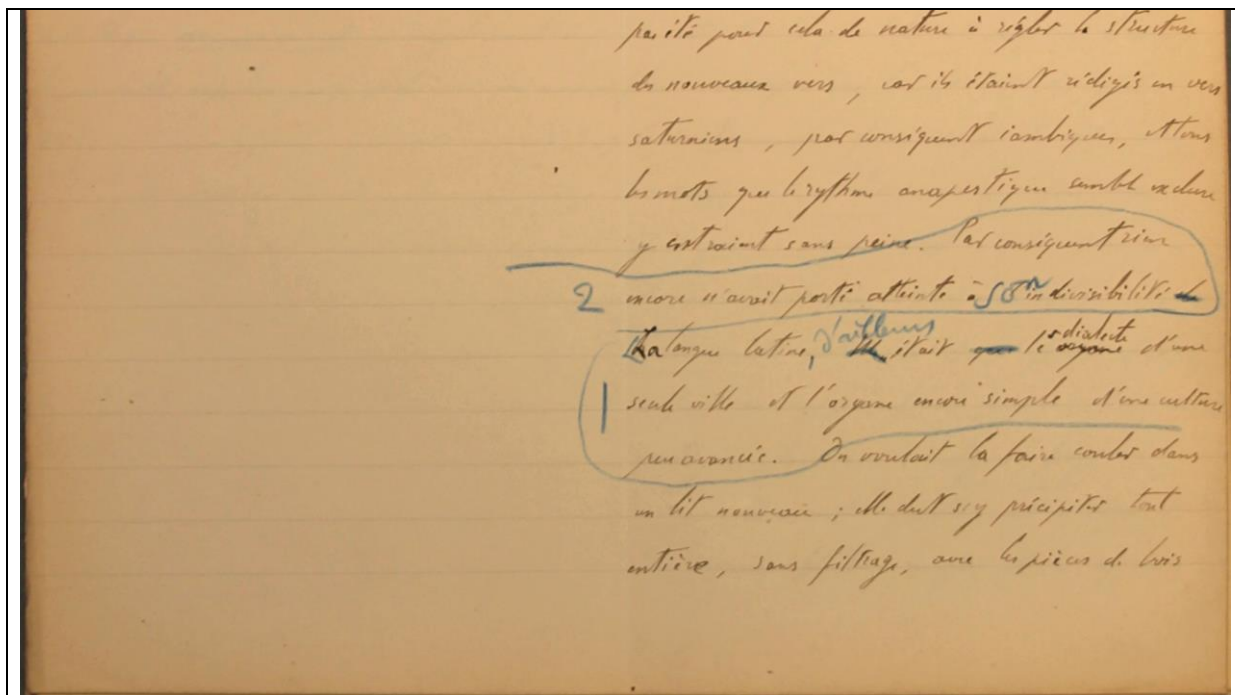 pacité pour cela de nature à régler la structure
des nouveaux vers, car ils étaient rédigés en vers
saturniens, par conséquent iambiques, et tous
les mots que le rythme anapestique semble exclure
y entraient sans peine. Par conséquent rien
2 encore n'avait porté atteinte à son indivisibilité de
La langue latine, d'ailleurs elle était que le dialecte organe d'une
1 seule ville et l'organe encore simple d'une culture
peu avancée. On voulait la faire couler dans
un lit nouveau ; elle dut s'y précipiter tout
entière, sans filtrage, avec les pièces de bois